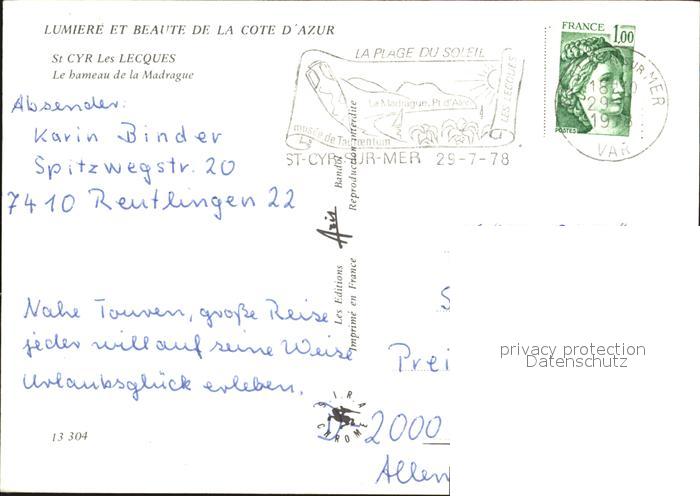 LUMIERE ET BEAUTE DE LA COTE D'AZUR
St CYR Les LECQUES
Le hameau de la Madrague
Absender:
Karin Binder
Spitzwegstr. 20
7410 Reutlingen 22
Nahe Touren, große Reise
jeder will auf seine Weise
Urlaubsglück erleben.
13 304
LA PLAGE DU SOLEIL
LES LECQUES
La Madrague, Pt d'Alon
musée de Tauroentum
ST-CYR-SUR-MER 29-7-78
FRANCE
1,00
POSTES
SUR-MER
18
29
19
VAR
Les Editions Aris Bandol
Imprimé en France Reproduction interdite
GIRA
CHROME
S
Prei
D-2000
Allen
privacy protection
Datenschutz